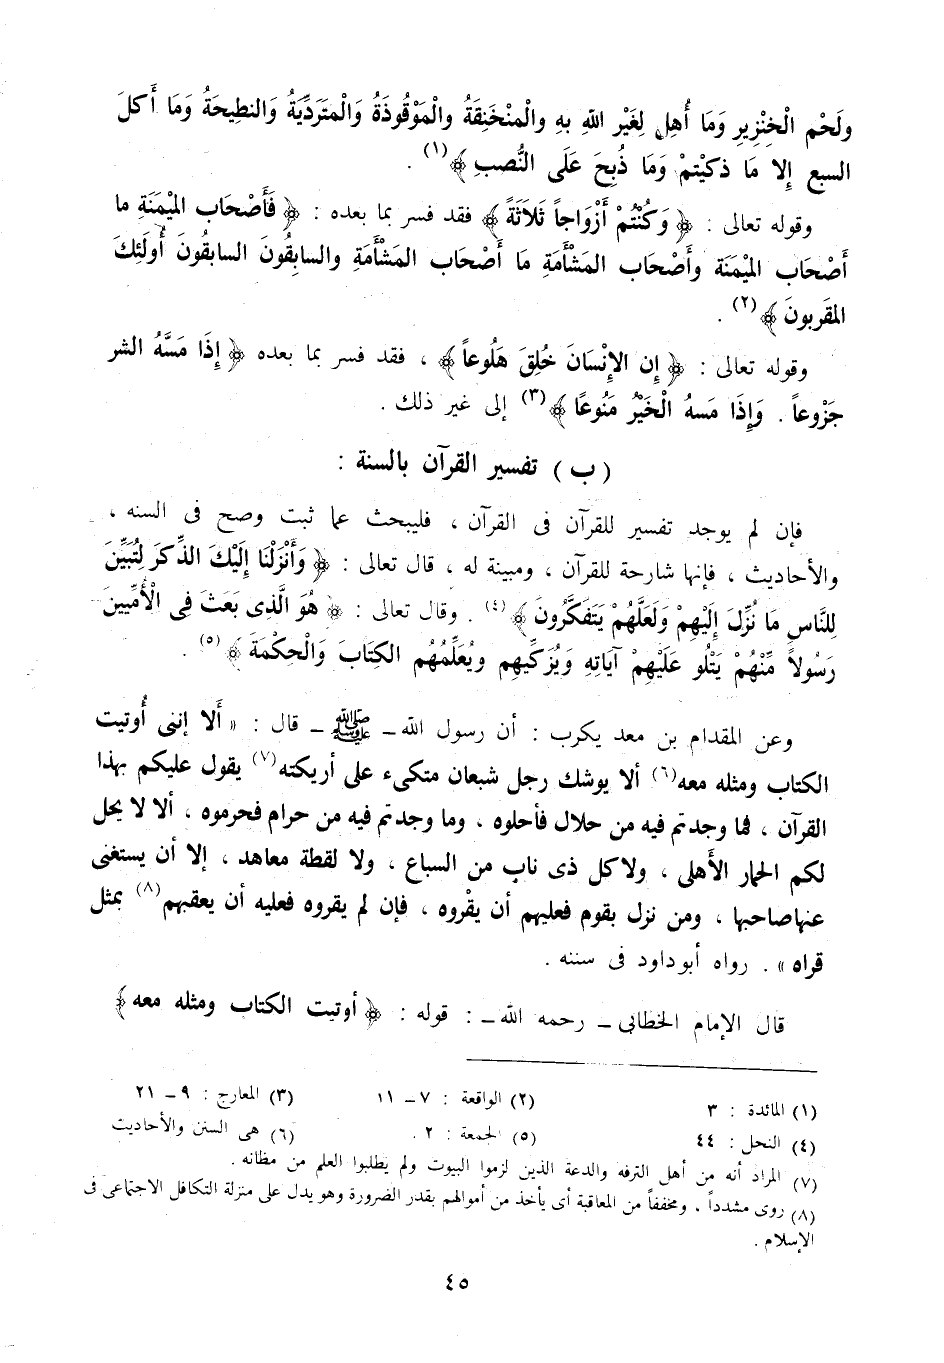 ولَحْم الْخِنْزِيرِ وَمَا أُهِلِ لِغَيْر اللهِ بِهِ والْمنْخَنِقَةُ والْمَوْقُوذَةُ وَالْمتَرَدِّيَةُ وَالنطِيحَةُ وَمَا أَكلَ
السبع إِلا مَا ذكيْتمْ وَمَا ذُبِحَ عَلَى النُّصبِ ﴾(١) .
وقوله تعالى : ﴿ وَكُنْتُمْ أَزْوَاجاً ثَلَاثَةً ﴾ فقد فسر بما بعده : ﴿ فَأَصْحَاب الميْمَنَةِ ما
أَصْحَاب الميْمَنَة وأَصْحَاب المَشْأَمَةِ ما أَصْحَاب المَشْأَمَةِ والسابِقُونَ السابقُونَ أُولَئِكَ
المقَربونَ ﴾(٢) .
وقوله تعالى : ﴿ إِن الإِنْسَانَ خُلِقَ هَلُوعاً ﴾ ، فقد فسر بما بعده ﴿ إِذَا مَسَّهُ الشر
جَزْوعاً . وَإِذَا مَسهُ الْخَيْرُ مَنُوعًا ﴾(٣) إلى غير ذلك .
( ب ) تفسير القرآن بالسنة :
فإن لم يوجد تفسير للقرآن فى القرآن ، فليبحث عما ثبت وصح فى السنه ،
والأحاديث ، فإنها شارحة للقرآن ، ومبينة له ، قال تعالى : ﴿ وَأَنْزَلْنَا إِلَيْكَ الذِّكرَ لِتُبَيِّنَ
لِلنَّاسِ مَا نُزِّلَ إِلَيْهِمْ وَلَعَلَّهُمْ يَتَفَكَّرُونَ ﴾(٤) . وقال تعالى : ﴿ هُوَ الَّذِى بَعَثَ فِى الْأُمِّيينَ
رَسُولاً مِّنْهُمْ يَتْلُو عَلَيْهِمْ آيَاتِهِ وَيُزَكِّيهِم ويُعَلِّمُهُم الكِتَابَ وَالْحكْمَةَ ﴾(٥) .
وعن المقدام بن معد يكرب : أن رسول الله ــ ﷺ ــ قال : « أَلا إننى أُوتيت
الكتاب ومثله معه(٦) ألا يوشك رجل شبعان متكىء على أريكته(٧) يقول عليكم بهذا
القرآن ، فما وجدتم فيه من حلال فأحلوه ، وما وجدتم فيه من حرام فحرموه ، ألا لا يحل
لكم الحمار الأَهلى ، ولاكل ذى ناب من السباع ، ولا لقطة معاهد ، إلا أن يستغنى
عنهاصاحبها ، ومن نزل بقوم فعليهم أن يقْروه ، فإن لم يقروه فعليه أن يعقبهم(٨) بمثل
قراه » . رواه أبوداود فى سننه .
قال الإمام الخطابى ــ رحمه الله ــ : قوله : ﴿ أوتيت الكتاب ومثله معه ﴾
(١) المائدة : ٣
(٢) الواقعة : ٧ ــ ١١
(٣) المعارج : ٩ ــ ٢١
(٤) النحل : ٤٤
(٥) الجمعة : ٢ .
(٦) هى السنن والأحاديث
(٧) المراد أنه من أهل الترفه والدعة الذين لزموا البيوت ولم يطلبوا العلم من مظانه .
(٨) روى مشدداً ، ومخففاً من المعاقبة أى يأخذ من أموالهم بقدر الضرورة وهو يدل على منزلة التكافل الاجتماعى فى
الإسلام .
٤٥